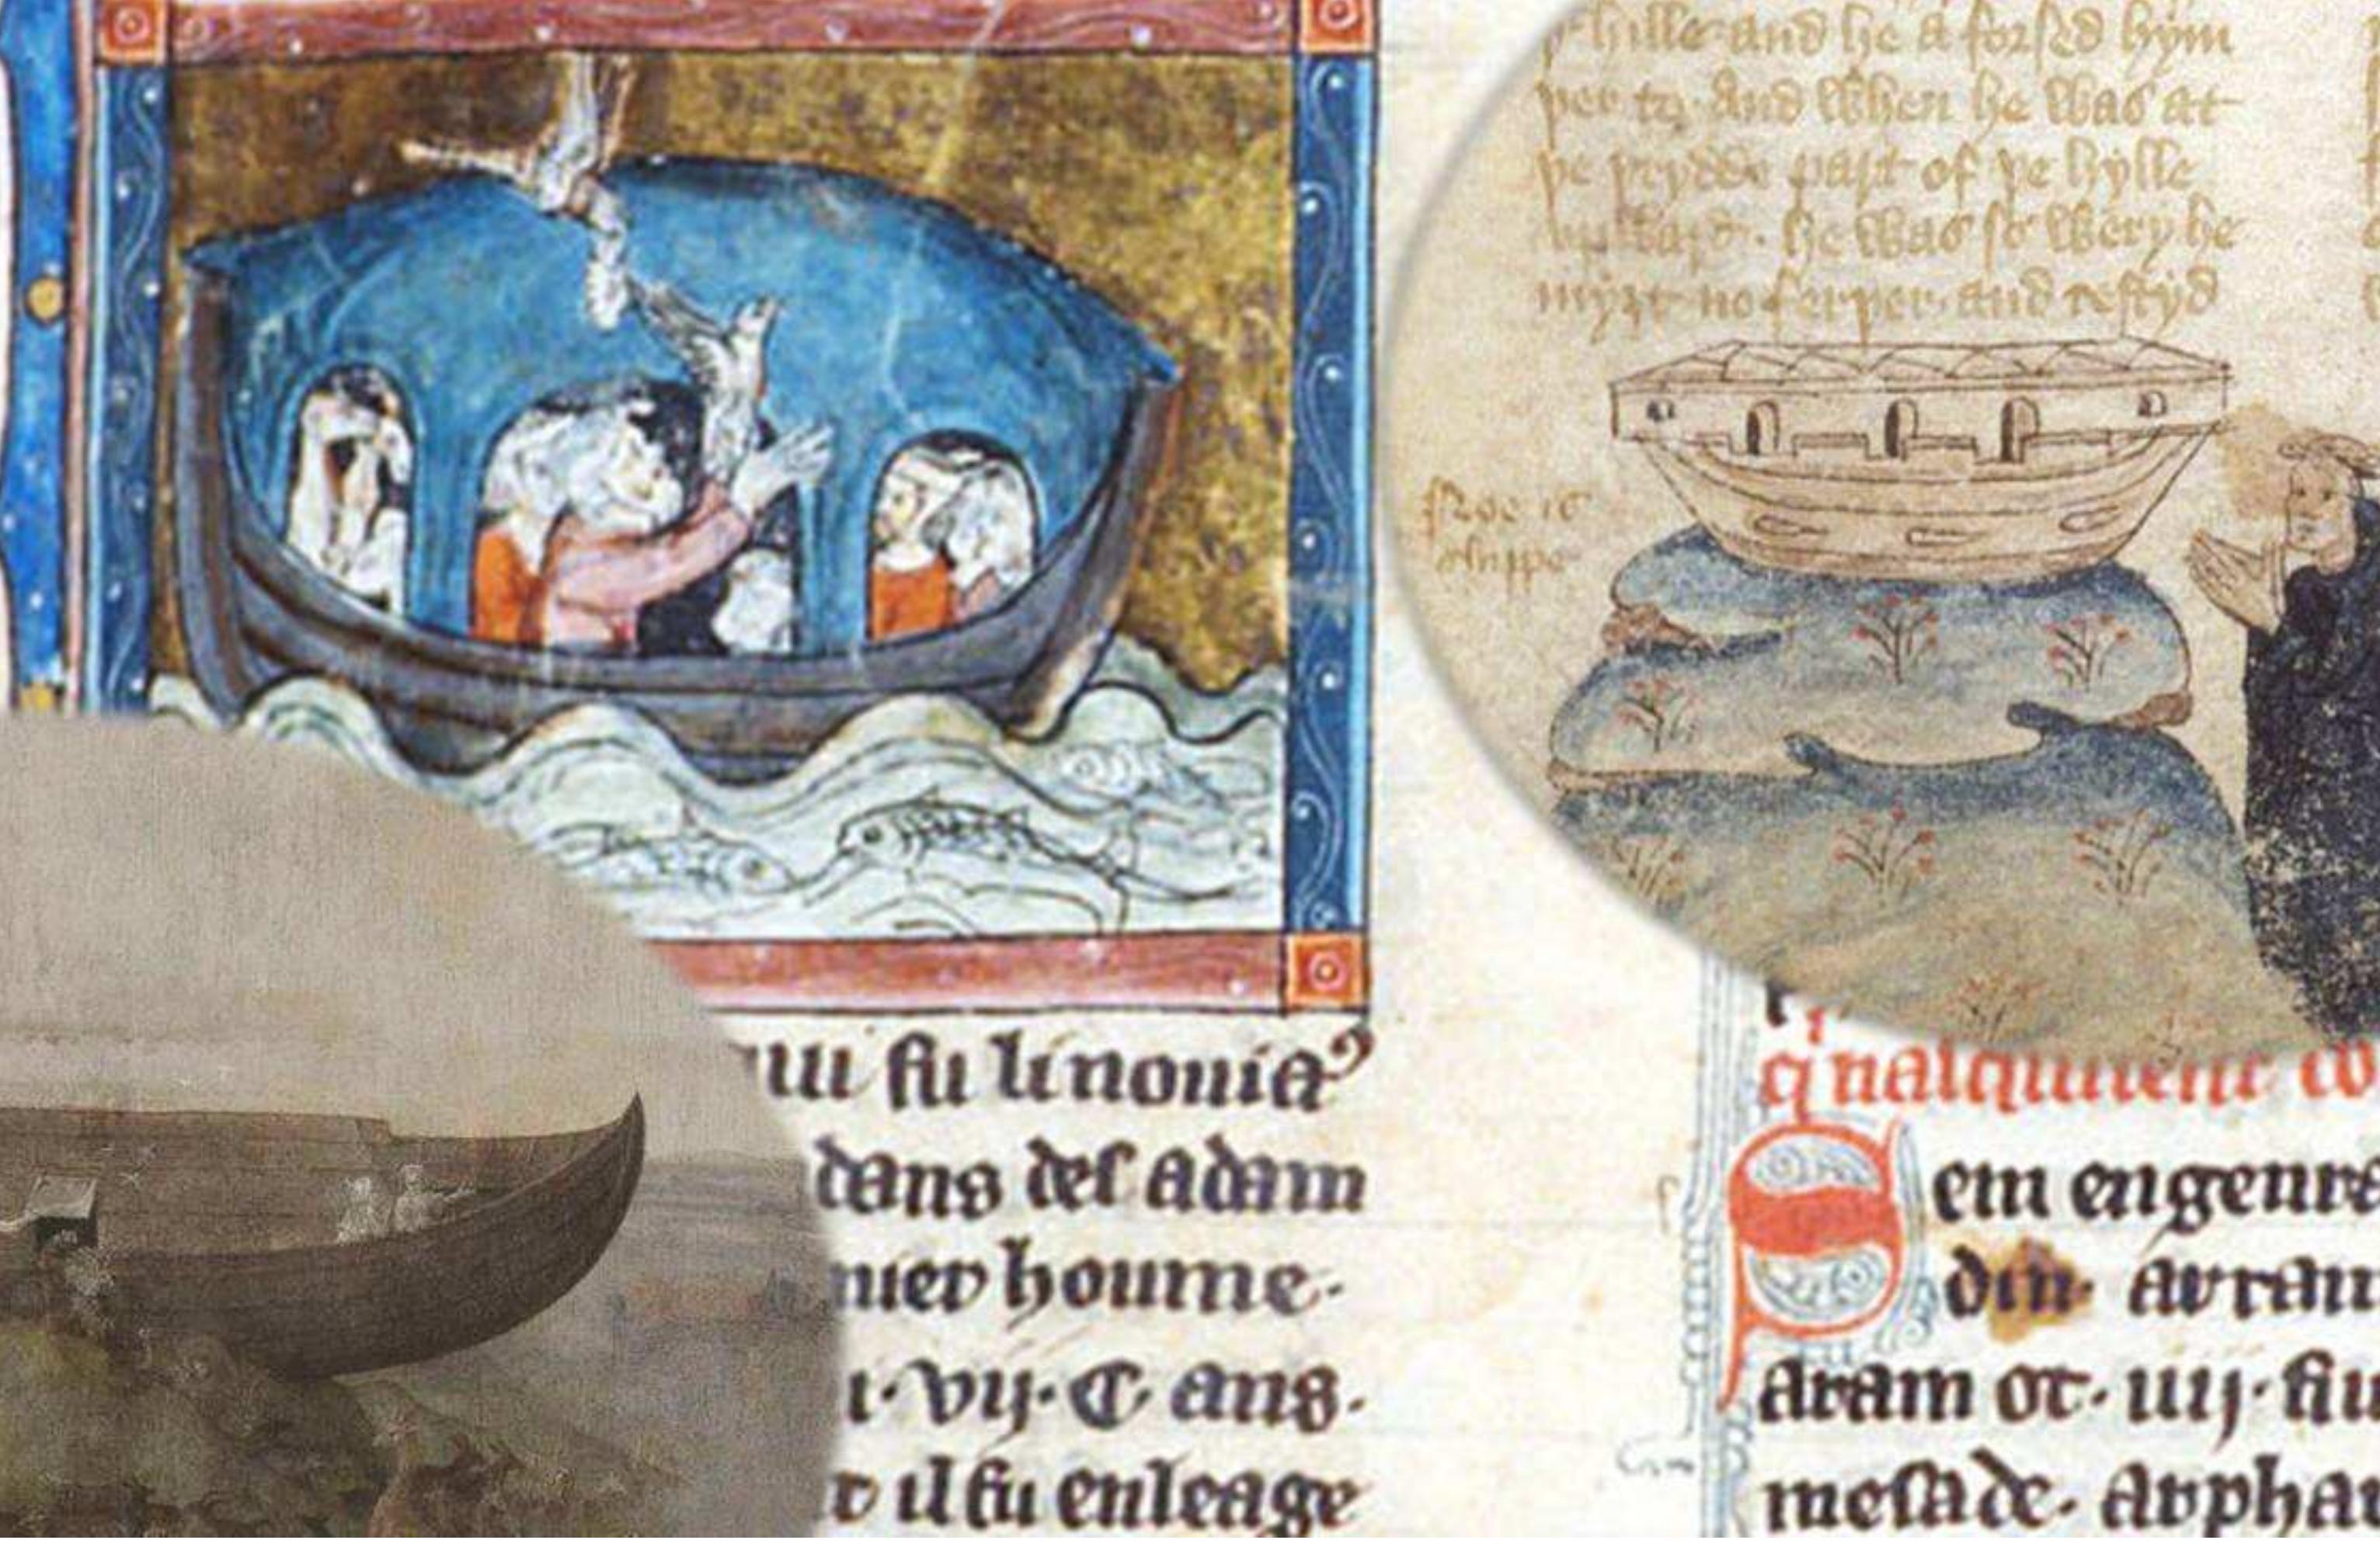 hille and he a forsed hym
þer to. And when he was at
þe þrydde part of þe hylle
he was so wery he
myȝt no ferþer. and restyd
Noe is
shippe
fu li nouia
dans des adam
mier houme.
vij. C. ans.
il fu en leage
Sem engenra
din. Aram
Aram ot. iiij. fiu
mesade. Arpha